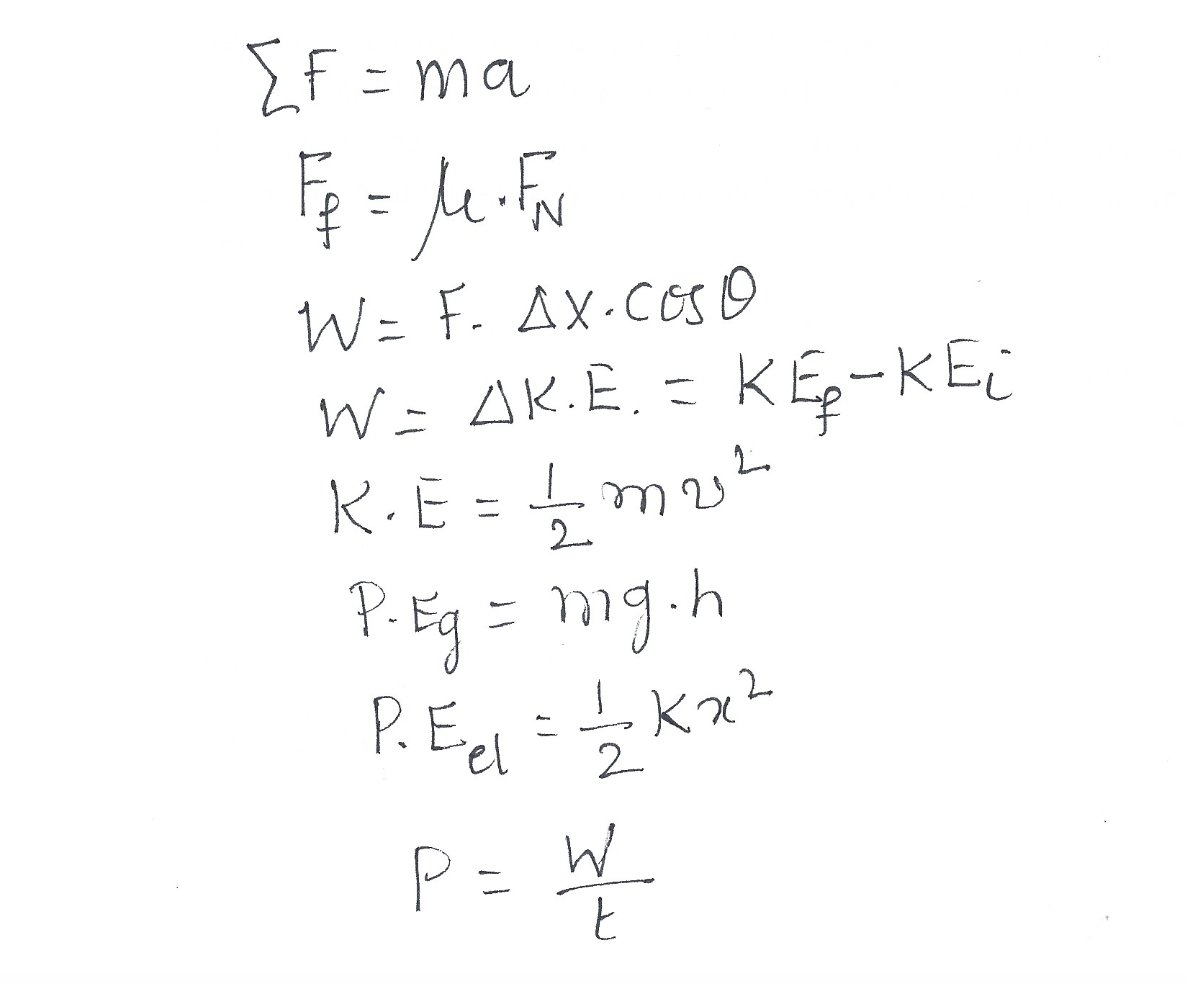 ΣF = ma
F_f = μ·F_N
W = F. Δx.cosθ
W = ΔK.E. = KE_f - KE_i
K.E = 1/2 mv²
P.Eg = mg.h
P.E_el = 1/2 Kx²
P = W/t